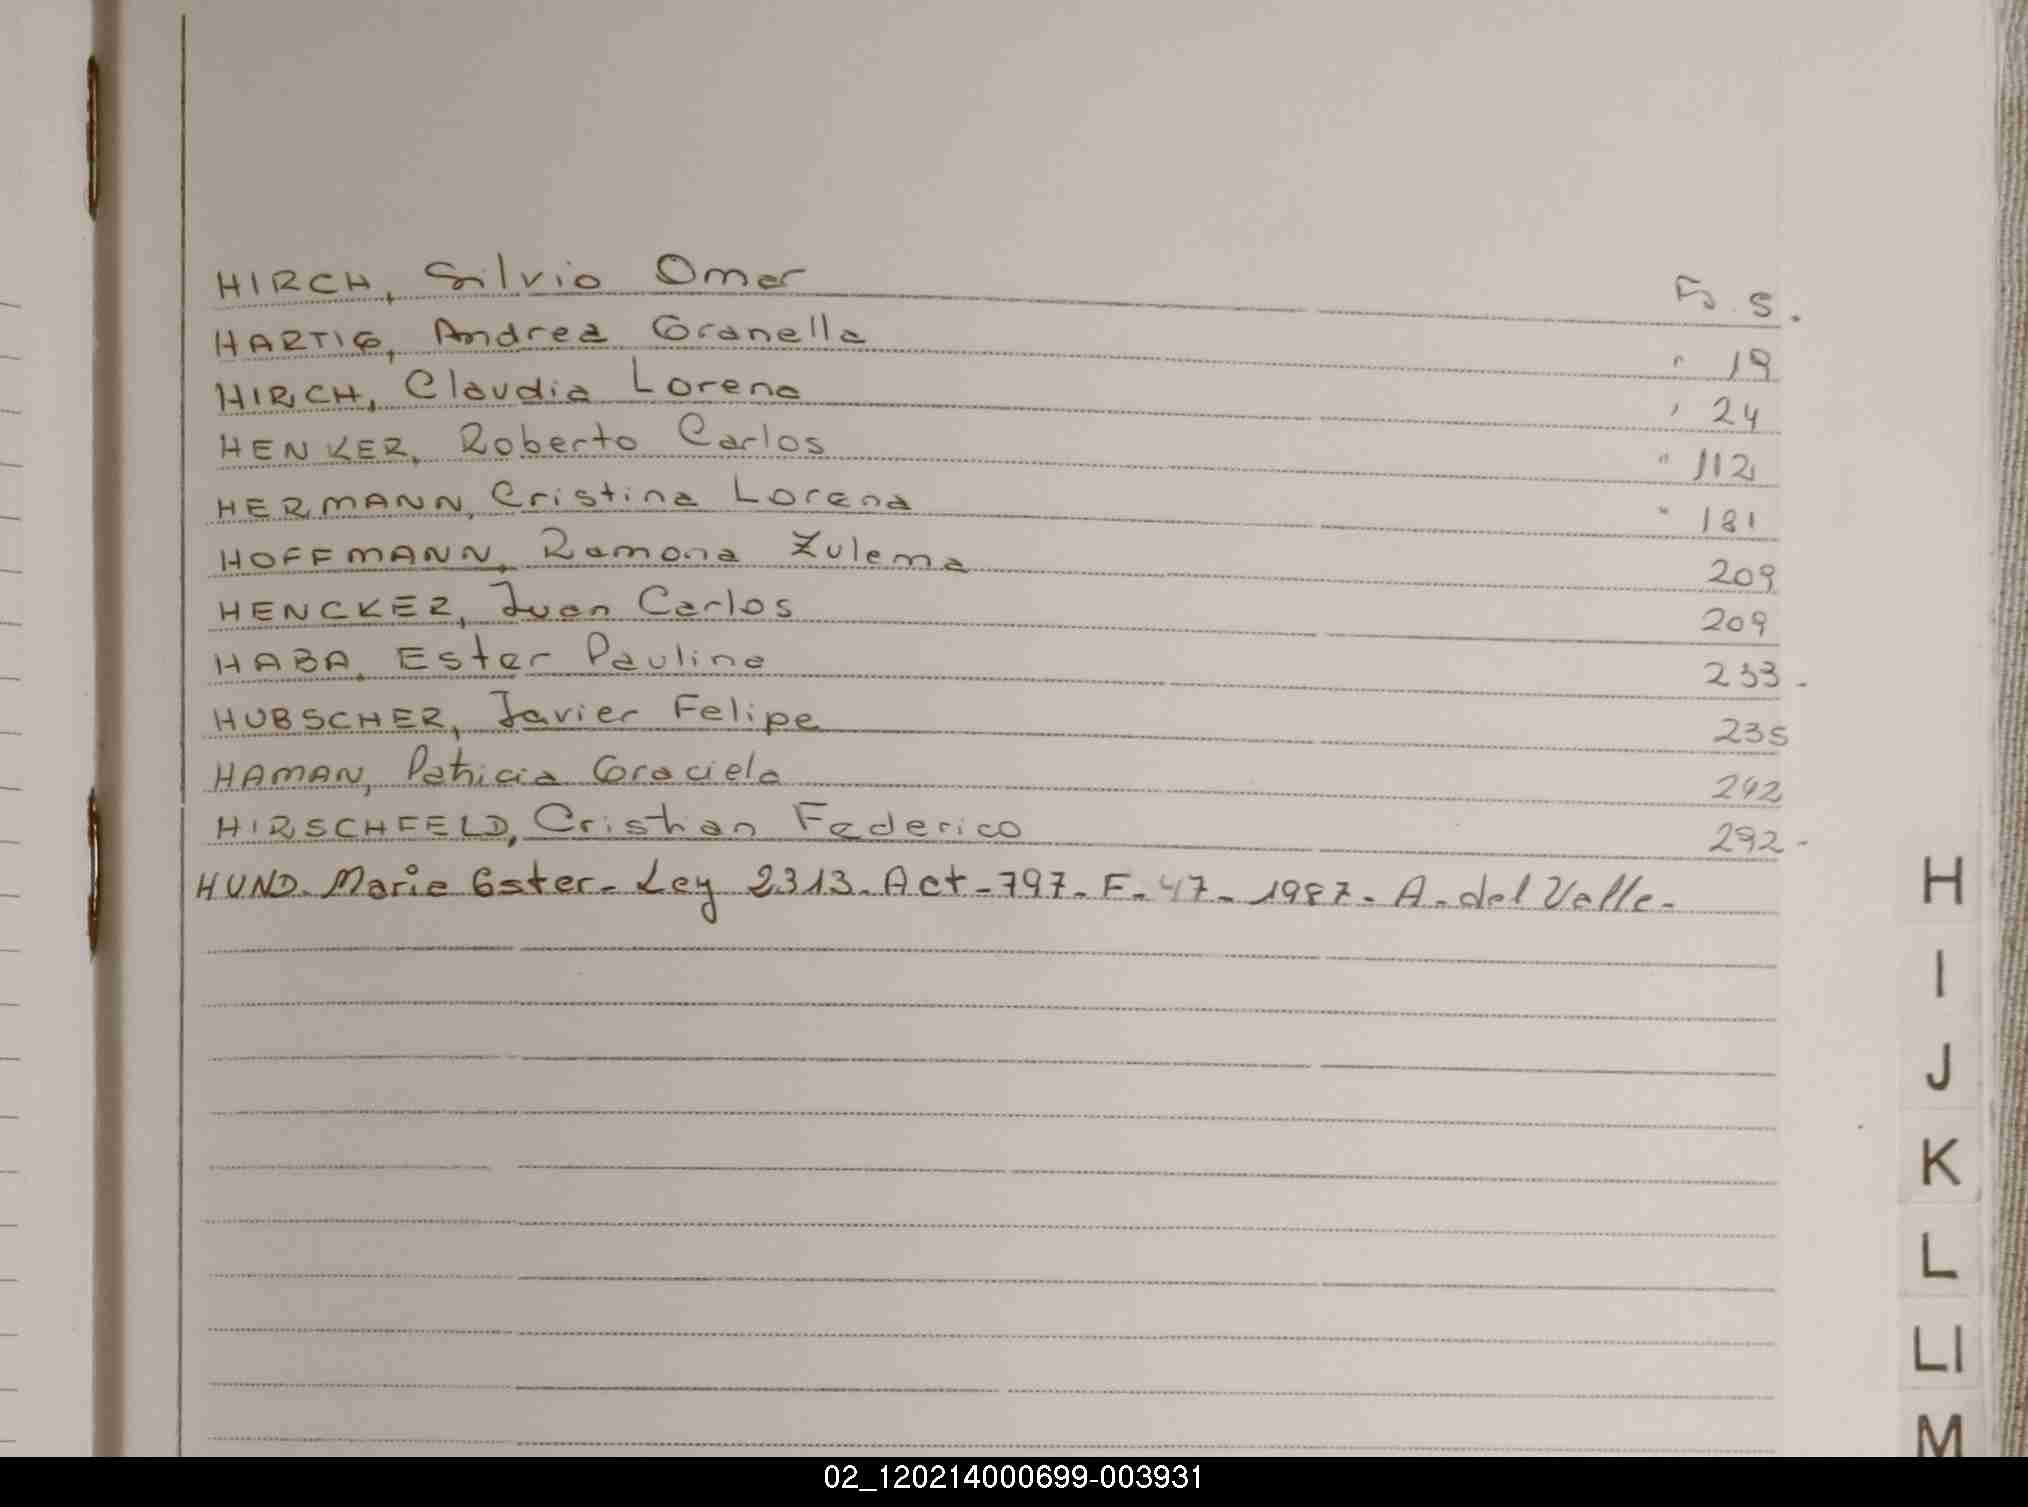 HIRCH, Silvio Omar Fo 5.
HARTIG, Andrea Granella " 19
HIRCH, Claudia Lorena " 24
HENKER, Roberto Carlos " 112
HERMANN, Cristina Lorena " 181
HOFFMANN, Ramona Zulema 209
HENCKER, Juan Carlos 209
HABA, Ester Paulina 233-
HUBSCHER, Javier Felipe 235
HAMAN, Patricia Graciela 242
HIRSCHFELD, Cristian Federico 292-
HUND. Maria Ester- Ley 2313. Act-797-F-47-1987. A. del Valle-
H
I
J
K
L
LI
M
02_120214000699-003931